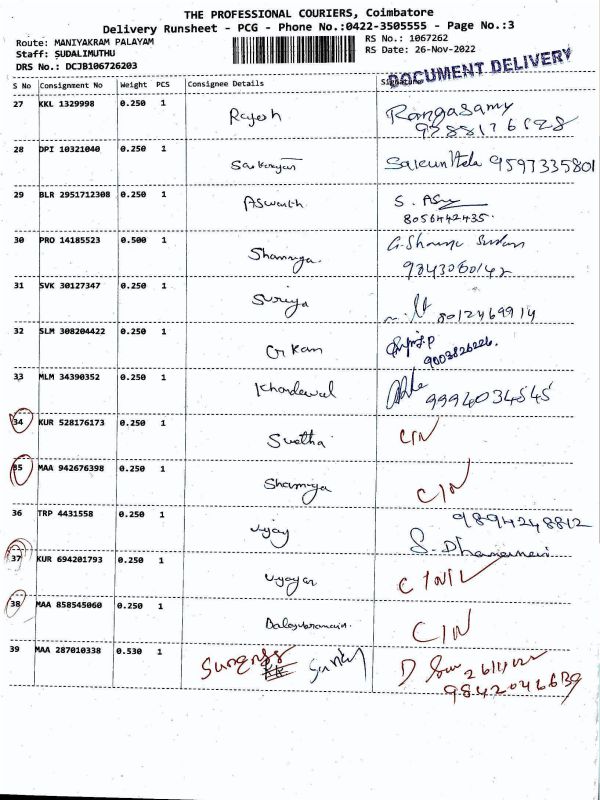 THE PROFESSIONAL COURIERS, Coimbatore
Delivery Runsheet - PCG - Phone No.:0422-3505555 - Page No.:3
Route: MANIYAKRAM PALAYAM RS No.: 1067262
Staff: SUDALIMUTHU RS Date: 26-Nov-2022
DRS No.: DCJB106726203
DOCUMENT DELIVERY
S No Consignment No Weight PCS Consignee Details Signature
27 KKL 1329998 0.250 1 Rajesh Rangasamy
28 DPI 10321040 0.250 1 9597335801
29 BLR 2951712308 0.250 1 Aswath S.
8056442435.
30 PRO 14185523 0.500 1 Shanmuga.
9843060142
31 SVK 30127347 0.250 1 Suriya 8012469914
32 SLM 308204422 0.250 1
9003826226.
33 MLM 34390352 0.250 1 Khandewal 9994034545
34 KUR 528176173 0.250 1 Swetha C/N
35 MAA 942676398 0.250 1 Shamiya C/N
9894248812
36 TRP 4431558 0.250 1 Vijay
37 KUR 694201793 0.250 1 Vijayan
38 MAA 858545060 0.250 1 C/N
39 MAA 287010338 0.530 1